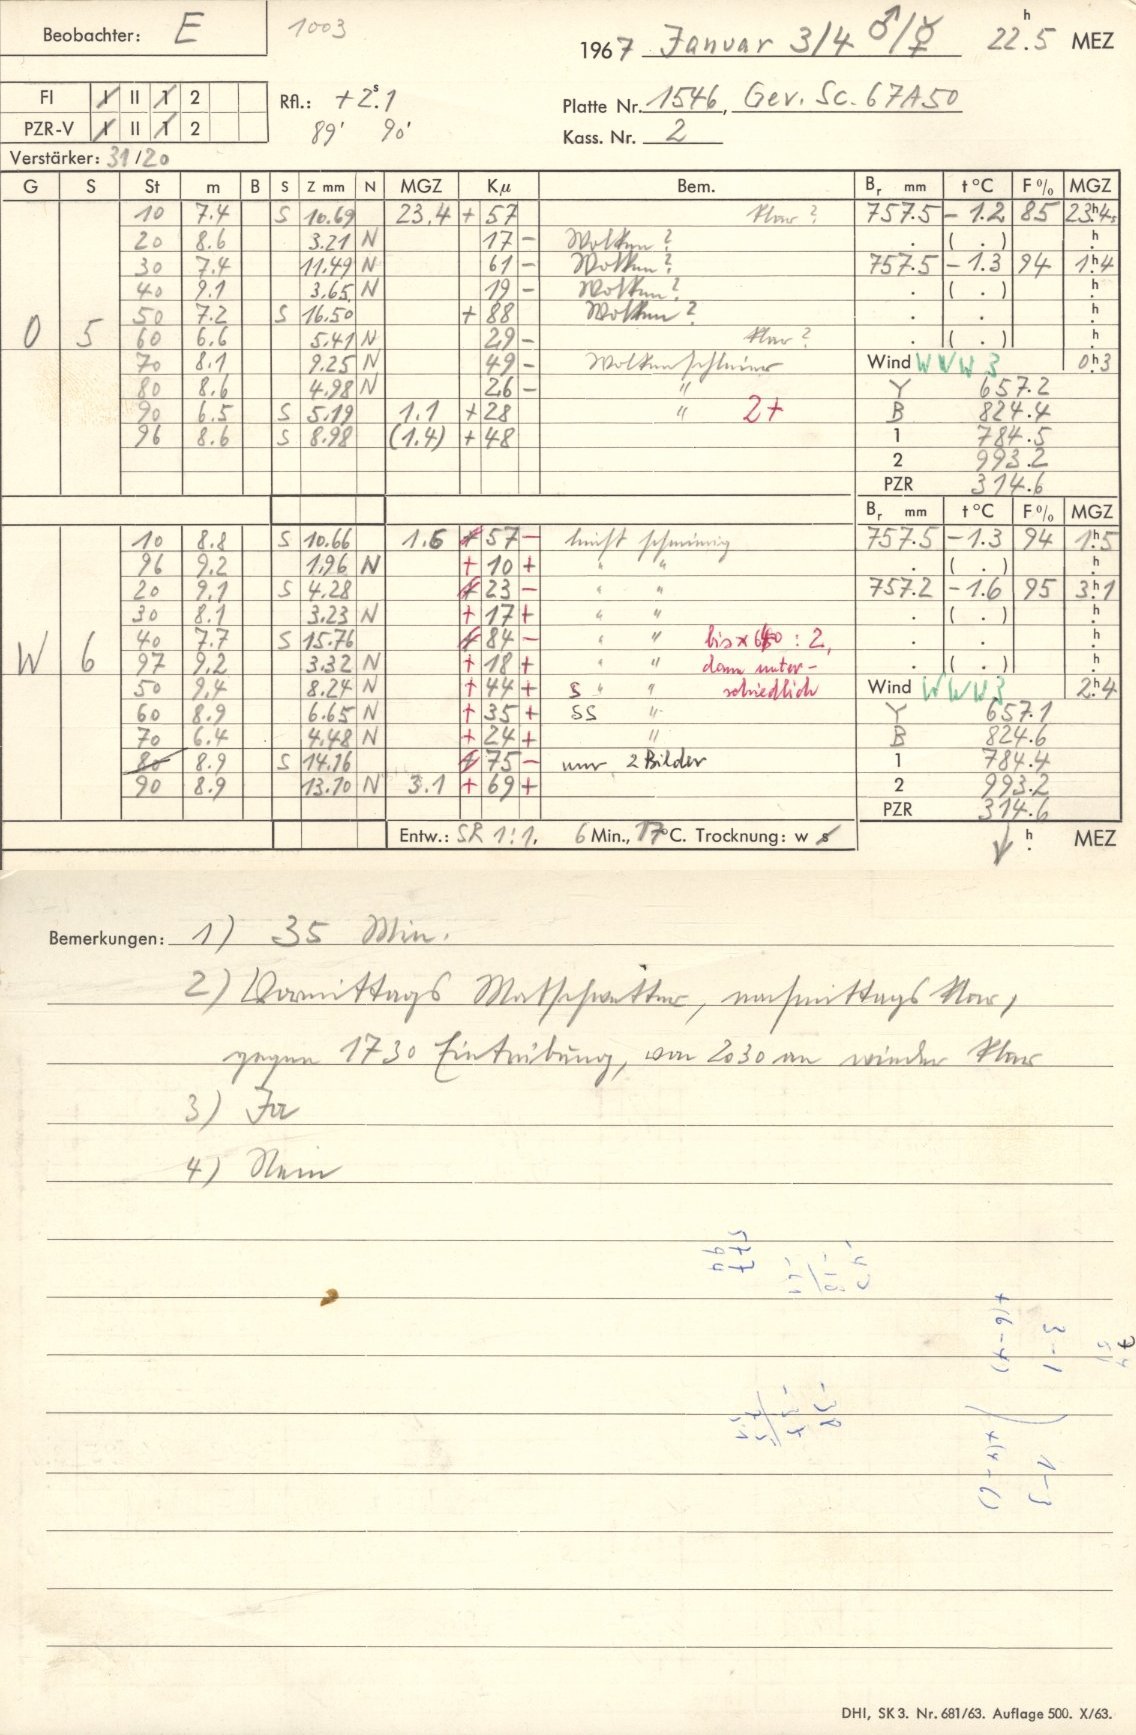 Beobachter: E 1003
1967 Januar 3/4 ♂/☿ 22.5 h MEZ
FI I II 1 2
PZR-V I II 1 2
Rfl.: +2.ˢ1
89' 90'
Platte Nr. 1546, Gev. Sc. 67A50
Kass. Nr. 2
Verstärker: 31/20
G S St m B S Z mm N MGZ Kμ Bem. Br mm t°C F% MGZ
10 7.4 S 10.69 23.4 + 57 klar? 757.5 -1.2 85 23.ʰ4
20 8.6 3.21 N 17 - Wolken? . ( . ) h
30 7.4 11.49 N 61 - Wolken? 757.5 -1.3 94 1.ʰ4
40 9.1 3.65 N 19 - Wolken? . ( . ) h
50 7.2 S 16.50 + 88 Wolken? . . h
O 5 60 6.6 5.41 N 29 - klar? . ( . ) h
70 8.1 9.25 N 49 - Wolkenschleier Wind WWW 3 0.ʰ3
80 8.6 4.98 N 26 - " Y 657.2
90 6.5 S 5.19 1.1 + 28 " 2+ B 824.4
96 8.6 S 8.98 (1.4) + 48 1 784.5
2 993.2
PZR 314.6
Br mm t°C F% MGZ
10 8.8 S 10.66 1.6 + 57 - leicht schmierig 757.5 -1.3 94 1.ʰ5
96 9.2 1.96 N + 10 + " " . ( . ) h
20 9.1 S 4.28 + 23 - " " 757.2 -1.6 95 3.ʰ1
30 8.1 3.23 N + 17 + " " . ( . ) h
40 7.7 S 15.76 + 84 - " " bis * 60 : 2, . . h
W 6 97 9.2 3.32 N + 18 + " " dann unter- . ( . ) h
50 9.4 8.24 N + 44 + S " " schiedlich Wind WWW 3 2.ʰ4
60 8.9 6.65 N + 35 + SS " Y 657.1
70 6.4 4.48 N + 24 + " B 824.6
80 8.9 S 14.16 + 75 - nur 2 Bilder 1 784.4
90 8.9 13.10 N 3.1 + 69 + 2 993.2
PZR 314.6
Entw.: SR 1:1. 6 Min., 17°C. Trocknung: w s h MEZ
Bemerkungen: 1) 35 Min.
2) Vormittags Matschwetter, nachmittags klar,
gegen 1730 Eintrübung, von 2030 an wieder klar
3) Ja
4) Nein
577
3 - 1
+(6 - 4)
-38
1 - 3
+(4 - 6)
DHI, SK 3. Nr. 681/63. Auflage 500. X/63.